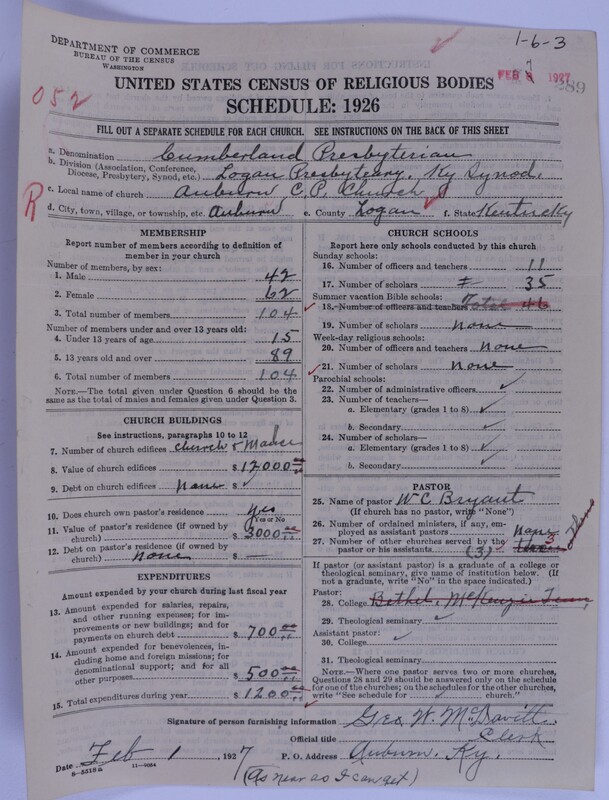 DEPARTMENT OF COMMERCE
BUREAU OF THE CENSUS
WASHINGTON
1-6-3
FEB 7 1927
289
UNITED STATES CENSUS OF RELIGIOUS BODIES
SCHEDULE: 1926
052
FILL OUT A SEPARATE SCHEDULE FOR EACH CHURCH. SEE INSTRUCTIONS ON THE BACK OF THIS SHEET
a. Denomination Cumberland Presbyterian
b. Division (Association, Conference, Diocese, Presbytery, Synod, etc.) Logan Presbyteary. Ky Synod.
c. Local name of church Auburn C. P. Church
R
d. City, town, village, or township, etc. Auburn e. County Logan f. State Kentucky
MEMBERSHIP
Report number of members according to definition of
member in your church
Number of members, by sex:
1. Male 42
2. Female 62
3. Total number of members 104
Number of members under and over 13 years old:
4. Under 13 years of age 15
5. 13 years old and over 89
6. Total number of members 104
NOTE.—The total given under Question 6 should be
same as the total of males and females given under Question 3.
CHURCH BUILDINGS
See instructions, paragraphs 10 to 12
7. Number of church edifices church & Manse
8. Value of church edifices $ 12000.00
9. Debt on church edifices none $
10. Does church own pastor's residence yes
(Yes or No)
11. Value of pastor's residence (if owned by
church) $ 3000.00
12. Debt on pastor's residence (if owned by
church) none $ —
EXPENDITURES
Amount expended by your church during last fiscal year
13. Amount expended for salaries, repairs,
and other running expenses; for im-
provements or new buildings; and for
payments on church debt $ 700.00
14. Amount expended for benevolences, in-
cluding home and foreign missions; for
denominational support; and for all
other purposes $ 500.00
15. Total expenditures during year $ 1200.00
CHURCH SCHOOLS
Report here only schools conducted by this church
Sunday schools:
16. Number of officers and teachers 11
17. Number of scholars 35
Summer vacation Bible schools:
18. Number of officers and teachers Total 46
19. Number of scholars none
Week-day religious schools:
20. Number of officers and teachers none
21. Number of scholars none
Parochial schools:
22. Number of administrative officers
23. Number of teachers—
a. Elementary (grades 1 to 8)
b. Secondary
24. Number of scholars—
a. Elementary (grades 1 to 8)
b. Secondary
PASTOR
25. Name of pastor W C Bryant
(If church has no pastor, write "None")
26. Number of ordained ministers, if any, em-
ployed as assistant pastors none
27. Number of other churches served by the
pastor or his assistants (3) 3
If pastor (or assistant pastor) is a graduate of a college or
theological seminary, give name of institution below. (If
not a graduate, write "No" in the space indicated.)
Pastor:
28. College Bethel, McKenzie Tenn
29. Theological seminary
Assistant pastor:
30. College
31. Theological seminary
NOTE.—Where one pastor serves two or more churches,
Questions 28 and 29 should be answered only on the schedule
for one of the churches; on the schedules for the other churches,
write "See schedule for church."
Signature of person furnishing information Geo. W. McDavitt
Official title Clerk
Date Feb 1, 1927 P. O. Address Auburn, Ky.
8-5318a 11-9054
(As near as I can get)